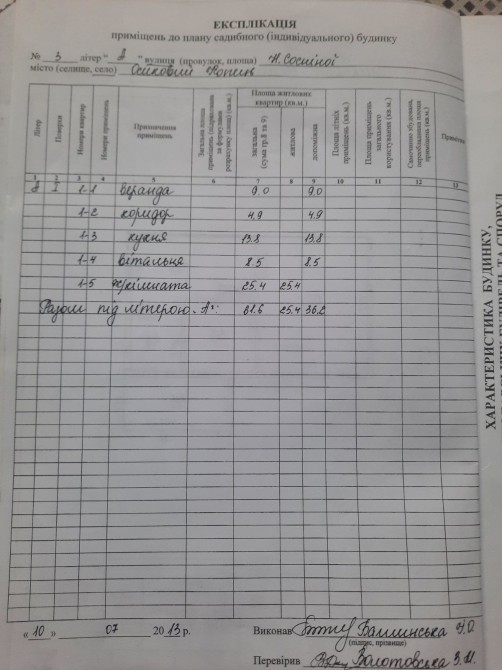 ЕКСПЛІКАЦІЯ
приміщень до плану садибного (індивідуального) будинку
№ 3 літер " " вулиця (провулок, площа) Н. Сосніної
місто (селище, село)
Літер
Поверхи
Номери квартир
Номери приміщень
Призначення приміщень
Загальна площа
Площа житлових квартир (кв.м.)
загальна (сума гр.8 та 9)
житлова
допоміжна
Площа літніх приміщень (кв.м.)
Площа приміщень загального користування (кв.м.)
Самовільно збудована, переобладнана площа приміщень (кв.м.)
1 2 3 4 5 6 7 8 9 10 11 12 13
1-1 веранда 9.0 9.0
1-2 коридор 4.9 4.9
1-3 кухня 13.8 13.8
1-4 вітальня 8.5 8.5
1-5 ж/кімната 25.4 25.4
Разом під літерою "А": 61.6 25.4 36.2
« 10 » 07 2013 р.
Виконав Башинська
(підпис, прізвище)
Перевірив Золотовська
ХАРАКТЕРИСТИКА БУДИНКУ,